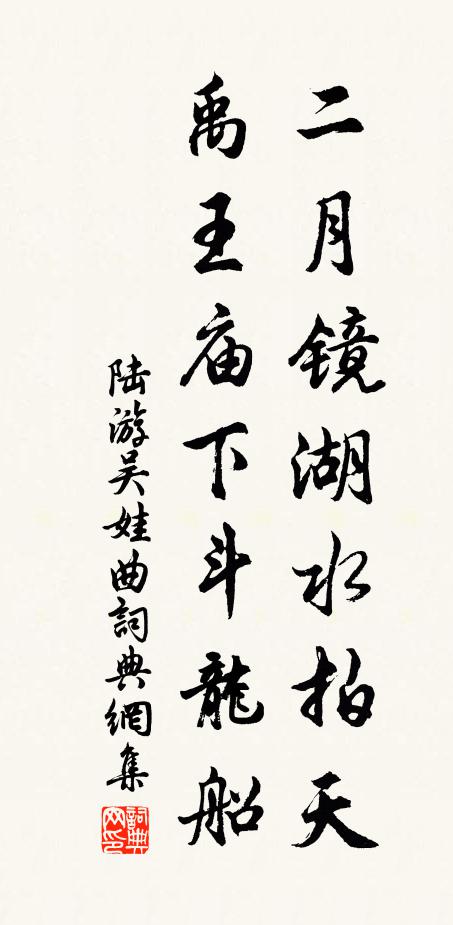 二月镜湖水拍天
禹王庙下斗龍船
陆游吴娃曲詞典網集
詞典网印